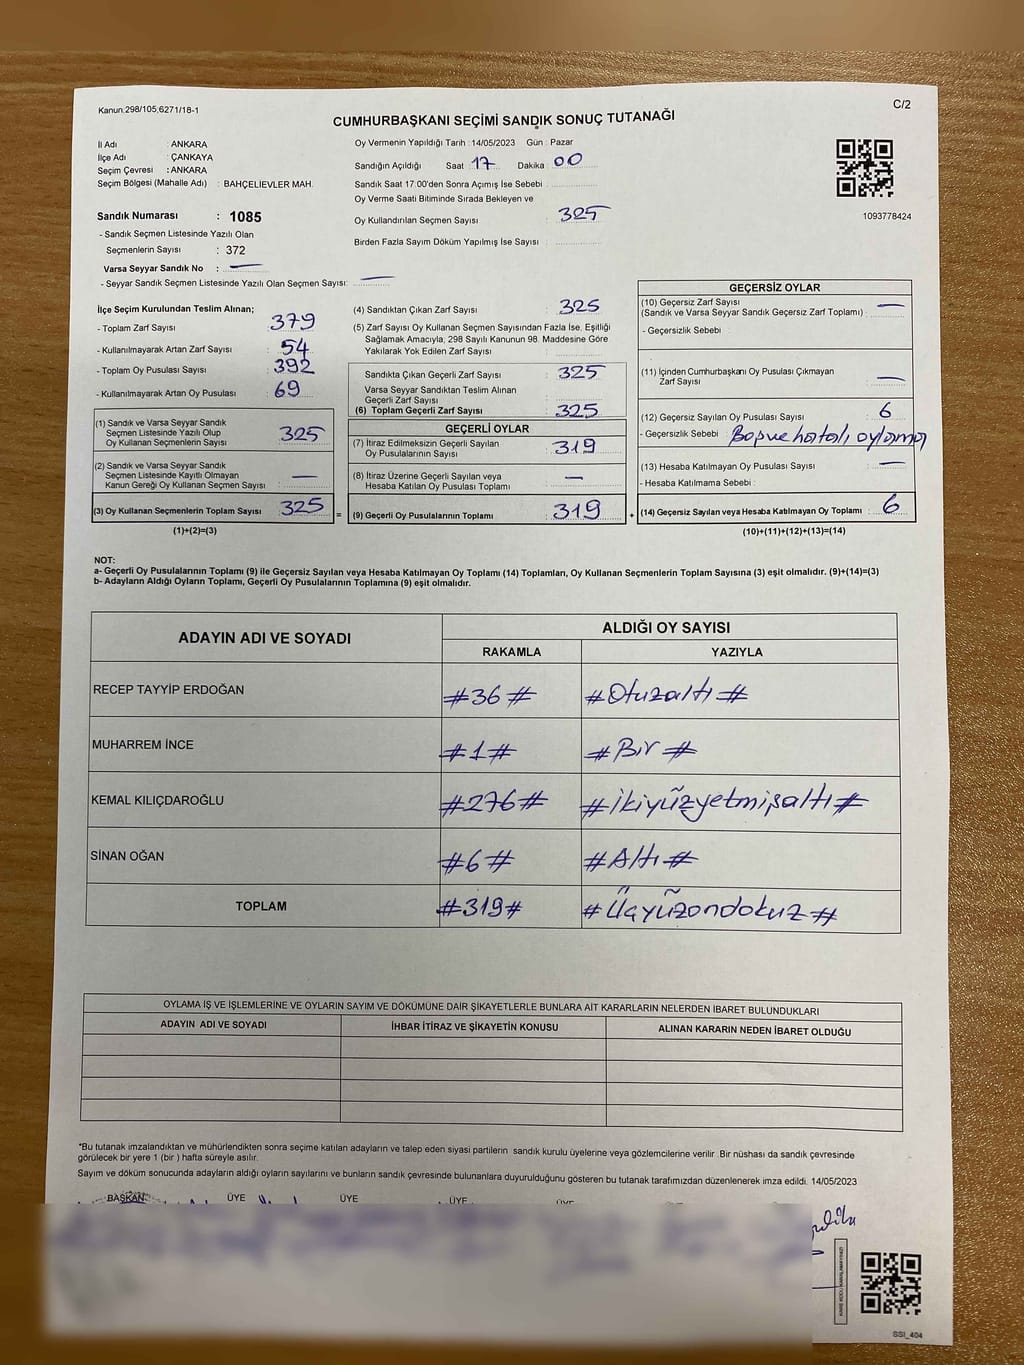 Kanun:298/105;6271/18-1
C/2
CUMHURBAŞKANI SEÇİMİ SANDIK SONUÇ TUTANAĞI
İl Adı : ANKARA
İlçe Adı : ÇANKAYA
Seçim Çevresi : ANKARA
Seçim Bölgesi (Mahalle Adı) : BAHÇELİEVLER MAH.
Sandık Numarası : 1085
- Sandık Seçmen Listesinde Yazılı Olan
Seçmenlerin Sayısı : 372
Varsa Seyyar Sandık No :
- Seyyar Sandık Seçmen Listesinde Yazılı Olan Seçmen Sayısı:
Oy Vermenin Yapıldığı Tarih : 14/05/2023 Gün : Pazar
Sandığın Açıldığı Saat 17 Dakika : 00
Sandık Saat 17:00'den Sonra Açımış İse Sebebi :
Oy Verme Saati Bitiminde Sırada Bekleyen ve
Oy Kullandırılan Seçmen Sayısı : 325
Birden Fazla Sayım Döküm Yapılmış İse Sayısı :
1093778424
İlçe Seçim Kurulundan Teslim Alınan;
- Toplam Zarf Sayısı : 379
- Kullanılmayarak Artan Zarf Sayısı : 54
- Toplam Oy Pusulası Sayısı : 392
- Kullanılmayarak Artan Oy Pusulası : 69
(1) Sandık ve Varsa Seyyar Sandık
Seçmen Listesinde Yazılı Olup
Oy Kullanan Seçmenlerin Sayısı : 325
(2) Sandık ve Varsa Seyyar Sandık
Seçmen Listesinde Kayıtlı Olmayan
Kanun Gereği Oy Kullanan Seçmen Sayısı : —
(3) Oy Kullanan Seçmenlerin Toplam Sayısı : 325
(1)+(2)=(3)
(4) Sandıktan Çıkan Zarf Sayısı : 325
(5) Zarf Sayısı Oy Kullanan Seçmen Sayısından Fazla İse, Eşitliği
Sağlamak Amacıyla; 298 Sayılı Kanunun 98. Maddesine Göre
Yakılarak Yok Edilen Zarf Sayısı :
Sandıkta Çıkan Geçerli Zarf Sayısı : 325
Varsa Seyyar Sandıktan Teslim Alınan
Geçerli Zarf Sayısı :
(6) Toplam Geçerli Zarf Sayısı : 325
GEÇERLİ OYLAR
(7) İtiraz Edilmeksizin Geçerli Sayılan
Oy Pusulalarının Sayısı : 319
(8) İtiraz Üzerine Geçerli Sayılan veya
Hesaba Katılan Oy Pusulası Toplamı : —
= (9) Geçerli Oy Pusulalarının Toplamı : 319 +
GEÇERSİZ OYLAR
(10) Geçersiz Zarf Sayısı
(Sandık ve Varsa Seyyar Sandık Geçersiz Zarf Toplamı) : —
- Geçersizlik Sebebi :
(11) İçinden Cumhurbaşkanı Oy Pusulası Çıkmayan
Zarf Sayısı : —
(12) Geçersiz Sayılan Oy Pusulası Sayısı : 6
- Geçersizlik Sebebi : Boş ve hatalı oylama
(13) Hesaba Katılmayan Oy Pusulası Sayısı : —
- Hesaba Katılmama Sebebi :
(14) Geçersiz Sayılan veya Hesaba Katılmayan Oy Toplamı : 6
(10)+(11)+(12)+(13)=(14)
NOT:
a- Geçerli Oy Pusulalarının Toplamı (9) ile Geçersiz Sayılan veya Hesaba Katılmayan Oy Toplamı (14) Toplamları, Oy Kullanan Seçmenlerin Toplam Sayısına (3) eşit olmalıdır. (9)+(14)=(3)
b- Adayların Aldığı Oyların Toplamı, Geçerli Oy Pusulalarının Toplamına (9) eşit olmalıdır.
ADAYIN ADI VE SOYADI
ALDIĞI OY SAYISI
RAKAMLA YAZIYLA
RECEP TAYYİP ERDOĞAN #36# #Otuzaltı#
MUHARREM İNCE #1# #Bir#
KEMAL KILIÇDAROĞLU #276# #ikiyüzyetmişaltı#
SİNAN OĞAN #6# #Altı#
TOPLAM #319# #Üçyüzondokuz#
OYLAMA İŞ VE İŞLEMLERİNE VE OYLARIN SAYIM VE DÖKÜMÜNE DAİR ŞİKAYETLERLE BUNLARA AİT KARARLARIN NELERDEN İBARET BULUNDUKLARI
ADAYIN ADI VE SOYADI İHBAR İTİRAZ VE ŞİKAYETİN KONUSU ALINAN KARARIN NEDEN İBARET OLDUĞU
*Bu tutanak imzalandıktan ve mühürlendikten sonra seçime katılan adayların ve talep eden siyasi partilerin sandık kurulu üyelerine veya gözlemcilerine verilir. Bir nüshası da sandık çevresinde
görülecek bir yere 1 (bir ) hafta süreyle asılır.
Sayım ve döküm sonucunda adayların aldığı oyların sayılarını ve bunların sandık çevresinde bulunanlara duyurulduğunu gösteren bu tutanak tarafımızdan düzenlenerek imza edildi. 14/05/2023
BAŞKAN ÜYE ÜYE ÜYE ÜYE
SSI_404